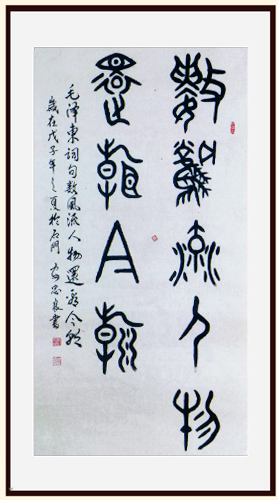 數風流人物
還看今朝
毛泽東詞句数風流人物還看今朝
歲在戊子年之夏於石門 忠良書